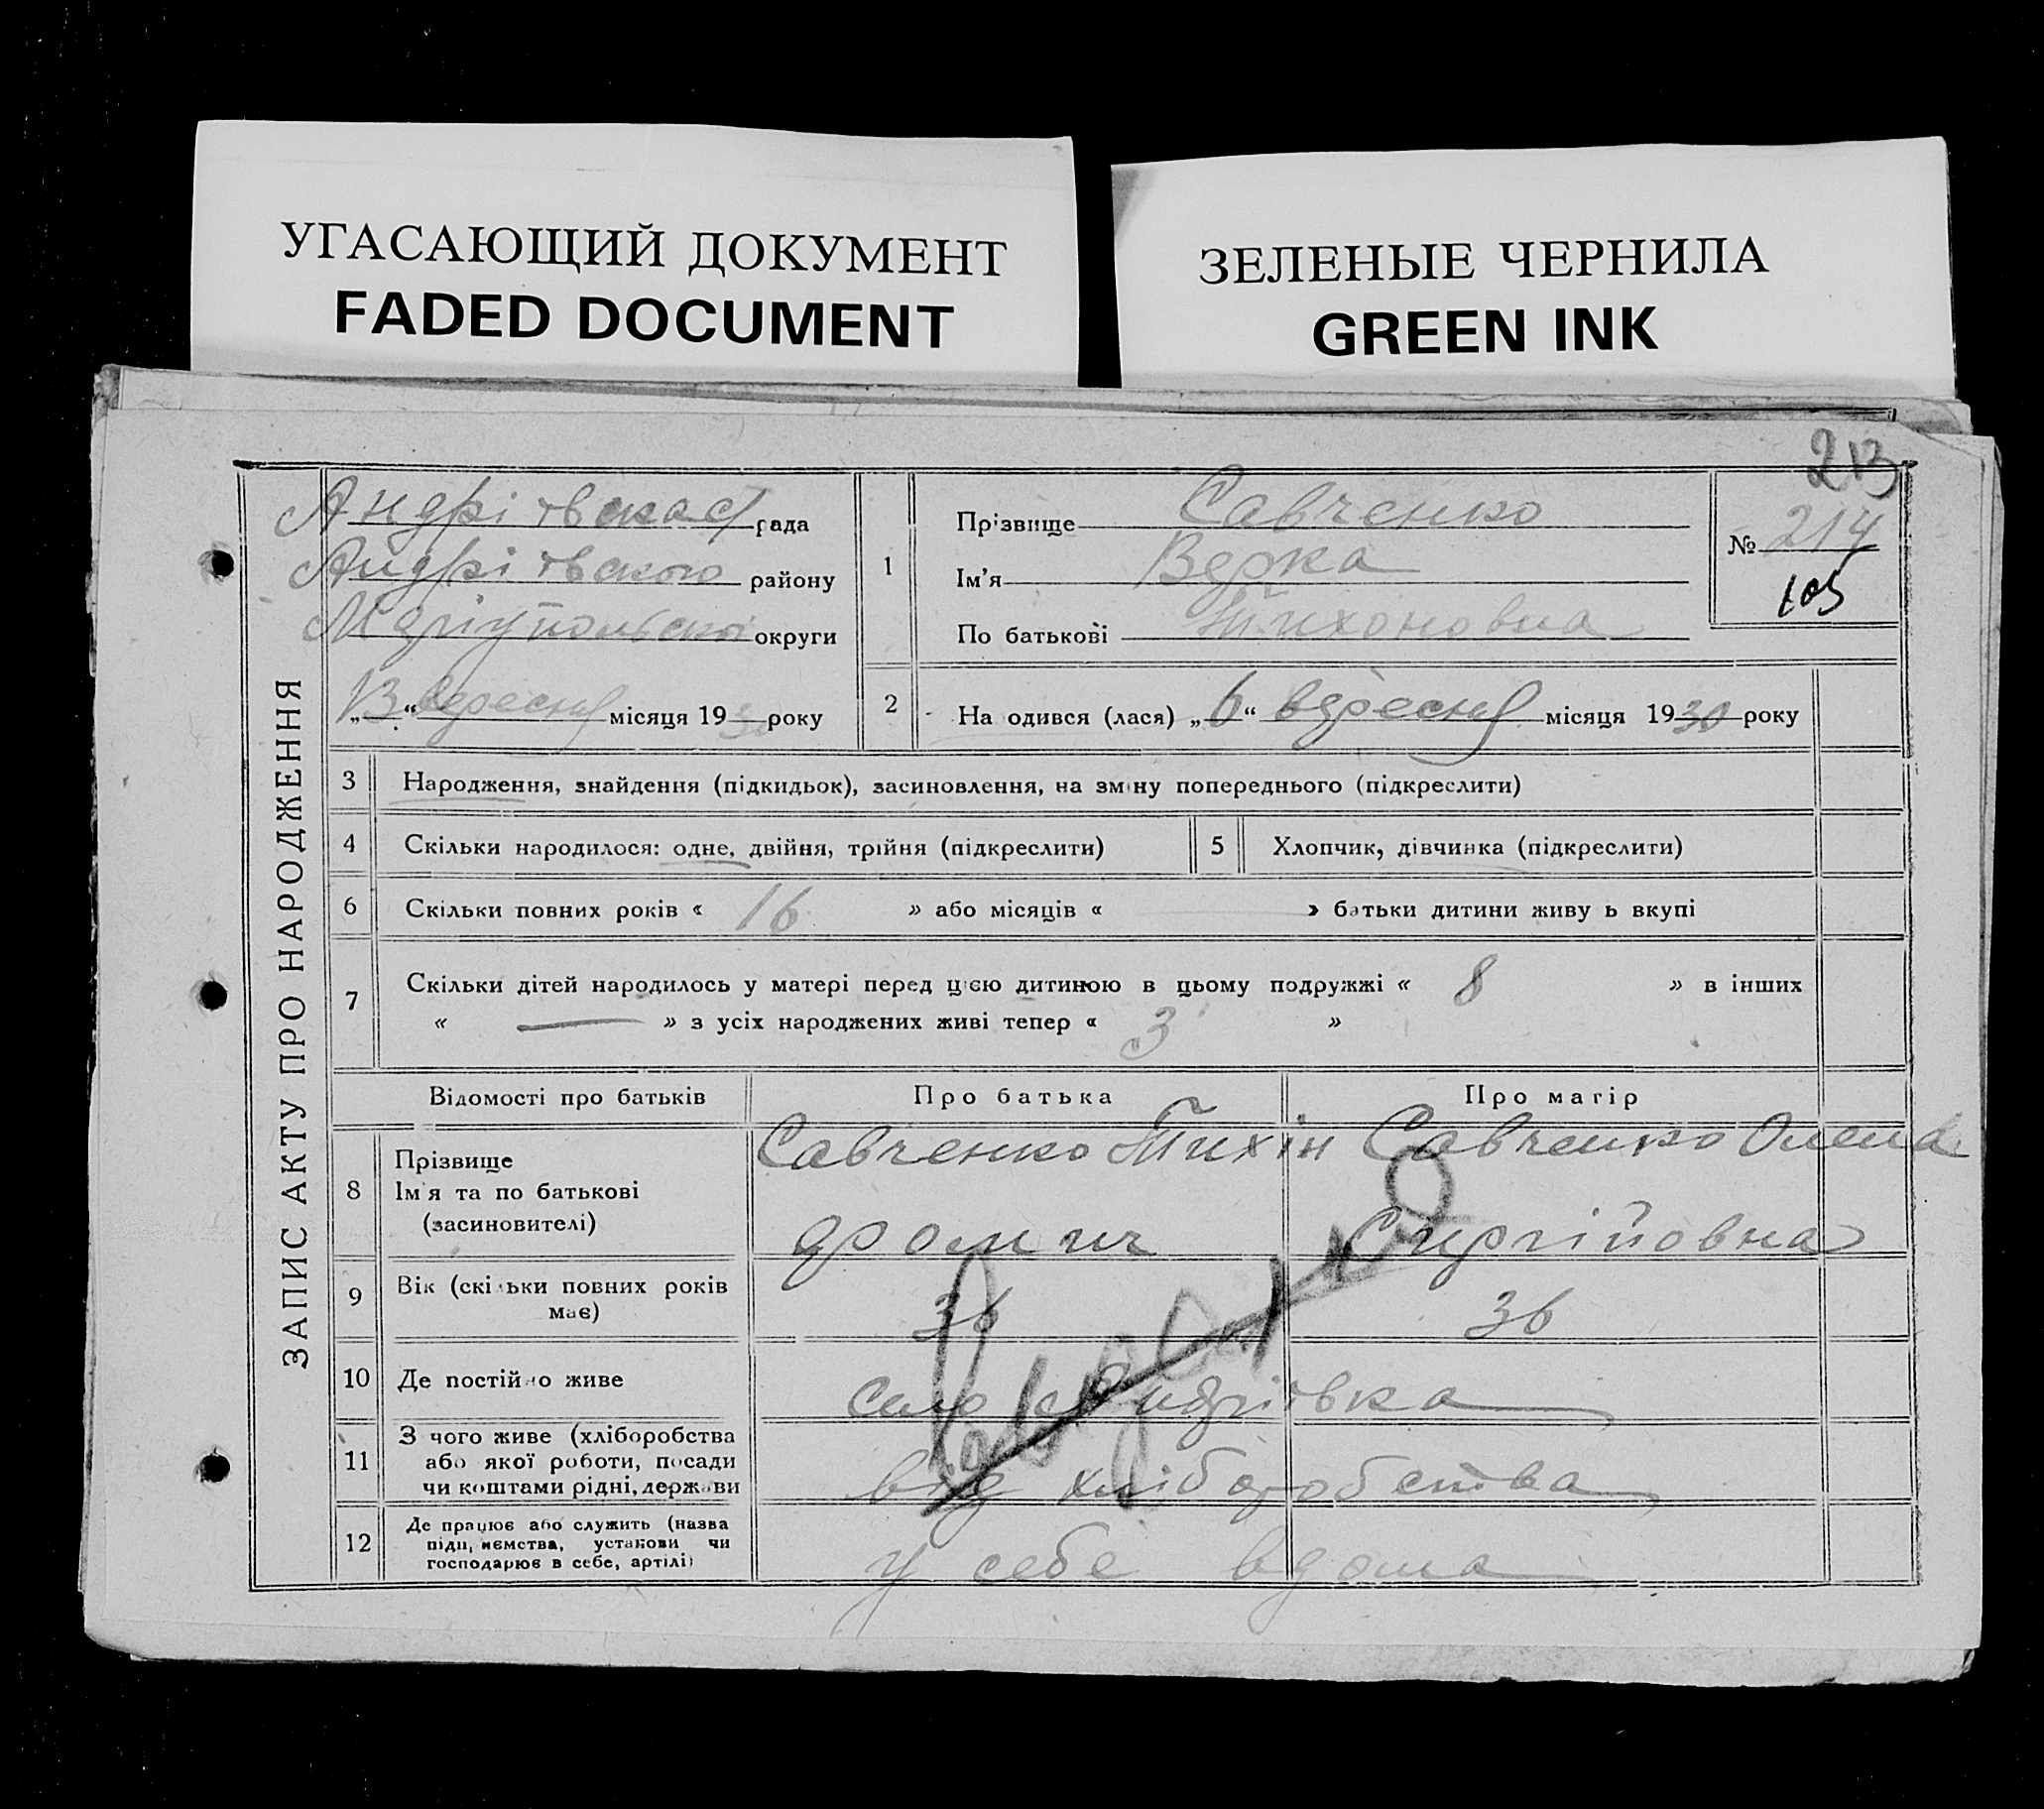 УГАСАЮЩИЙ ДОКУМЕНТ
FADED DOCUMENT
ЗЕЛЕНЫЕ ЧЕРНИЛА
GREEN INK
213
ЗАПИС АКТУ ПРО НАРОДЖЕННЯ
Андріївская рада
Андріївского району
Маріупольскої округи
„13“ вересня місяця 1930 року
1
Прізвище Савченко
Ім'я Верка
По батькові Тихоновна
№ 214
105
2 На одився (лася) „6“ вересня місяця 1930 року
3 Народження, знайдення (підкидьок), засиновлення, на зміну попереднього (підкреслити)
4 Скільки народилося: одне, двійня, трійня (підкреслити)
5 Хлопчик, дівчинка (підкреслити)
6 Скільки повних років « 16 » або місяців « — » батьки дитини живу ь вкупі
7 Скільки дітей народилось у матері перед цією дитиною в цьому подружжі « 8 » в інших
« — » з усіх народжених живі тепер « 3 »
Відомості про батьків Про батька Про матір
8 Прізвище
Ім'я та по батькові
(засиновителі)
Савченко Тихін
Савченко Олена
Сиргійовна
9 Вік (скільки повних років
має)
36
36
10 Де постійно живе
село Андріївка
11 З чого живе (хліборобства
або якої роботи, посади
чи коштами рідні, держави
від хліборобства
12 Де працює або служить (назва
підприємства, установи чи
господарює в себе, артілі)
у себе вдома